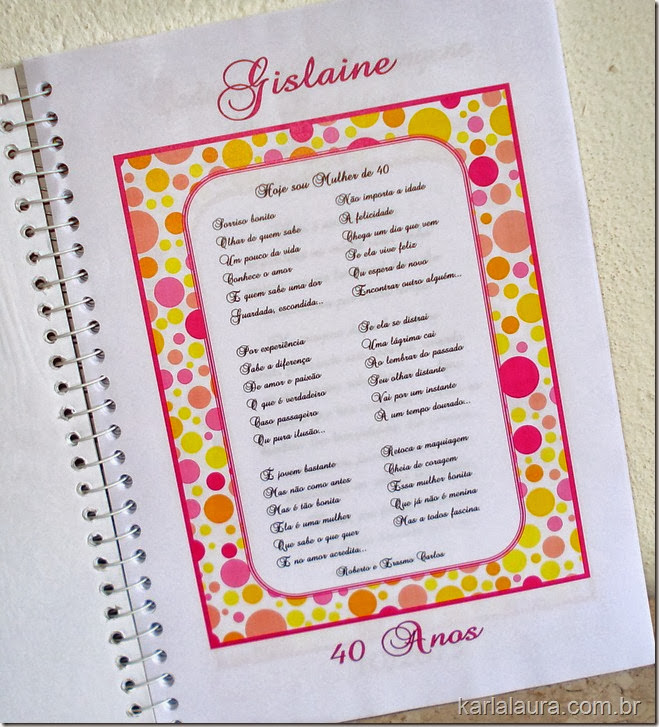 Gislaine
Hoje sou Mulher de 40
Sorriso bonito
Olhar de quem sabe
Um pouco da vida
Conhece o amor
E quem sabe uma dor
Guardada, escondida...
Por experiência
Sabe a diferença
De amor e paixão
O que é verdadeiro
Caso passageiro
Ou pura ilusão...
É jovem bastante
Mas não como antes
Mas é tão bonita
Ela é uma mulher
Que sabe o que quer
E no amor acredita...
Não importa a idade
A felicidade
Chega um dia que vem
Se ela vive feliz
Ou espera de novo
Encontrar outro alguém...
Se ela se distrai
Uma lágrima cai
Ao lembrar do passado
Seu olhar distante
Vai por um instante
A um tempo dourado...
Retoca a maquiagem
Cheia de coragem
Essa mulher bonita
Que já não é menina
Mas a todos fascina.
Roberto e Erasmo Carlos
40 Anos
karlalaura.com.br